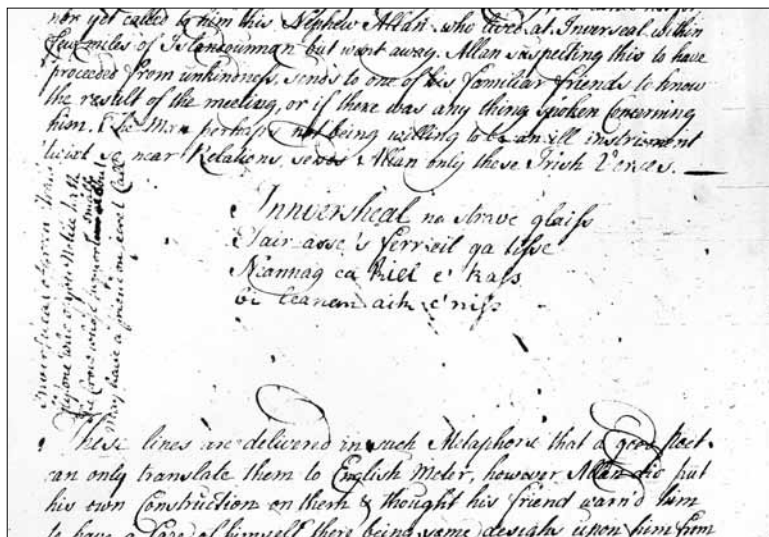 nor yet called to him this Nephew Allan who lived at Inverseal within
few miles of Islandounnan but went away. Allan suspecting this to have
proceeded from unkindness, sends to one of his familiar friends to know
the result of the meeting, or if there was any thing spoken Concerning
him. The Man perhaps not being willing to be an ill instrument
twixt so near Relations, sends Allan only these Irish Verces.
Innversheal na strave glaiss
Tair asse 's ferreil ga tisse
Neannag ca kiel e' kass
bi leanem aik e' niss
Inverseal of green
fly
the Crow whose small
May have a
These lines are delivered in such Metaphore that a good Poet
can only translate them to English Meter, however Allan did put
his own Construction on them & thought his friend warn'd him
to have a Care of himself there being some designs upon him from